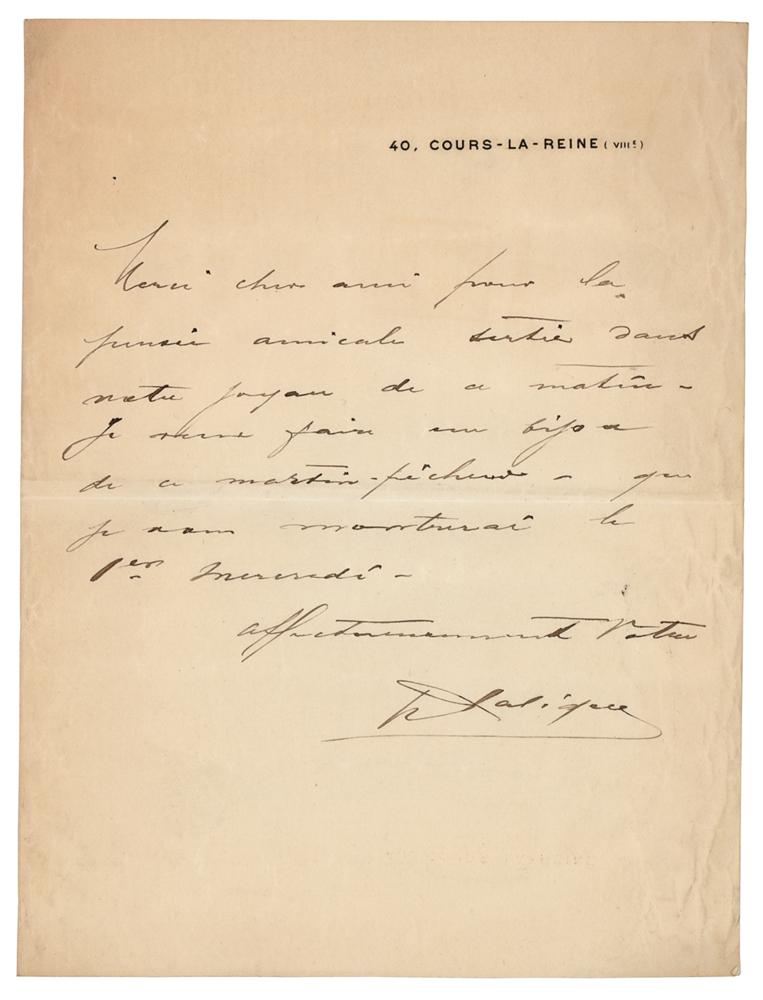 40, COURS-LA-REINE (VIIIᵉ)
Merci cher ami pour la
pensée amicale sertie dans
notre joyau de ce matin -
Je veux faire un bijou
de ce martin-pêcheur - que
je vous montrerai le
1er Mercredi -
affectueusement Votre
R Lalique